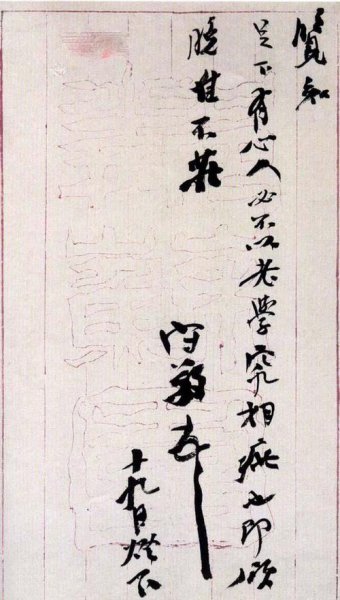 覽知
足下有心人必不以老學究相疵也即頌
晚佳不莊
守敬
十九日燈下